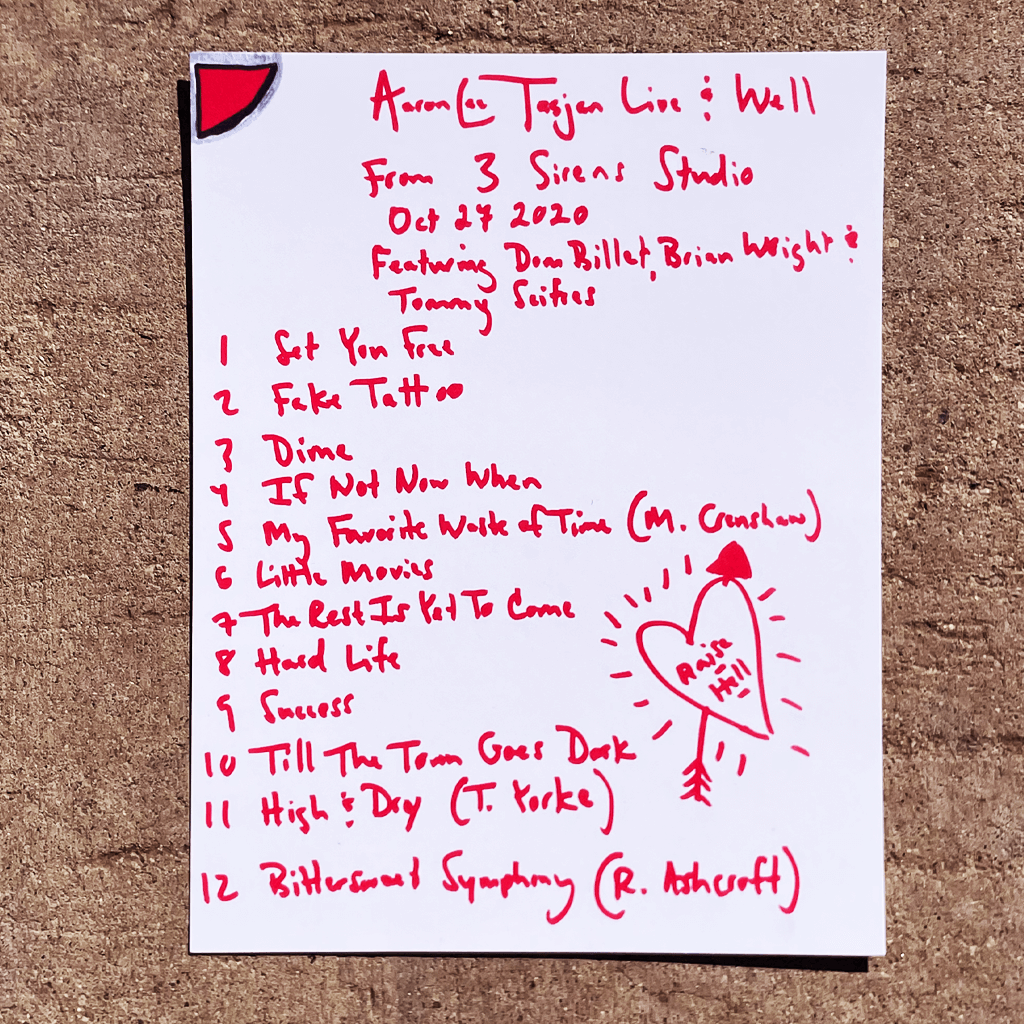 Aaron Lee Tasjan Live & Well
From 3 Sirens Studio
Oct 27 2020
Featuring Dom Billet, Brian Wright &
Tommy Scifres
1 Set You Free
2 Fake Tattoo
3 Dime
4 If Not Now When
5 My Favorite Waste of Time (M. Crenshaw)
6 Little Movies
7 The Rest Is Yet To Come
8 Hard Life
9 Success
10 Till The Town Goes Dark
11 High & Dry (T. Yorke)
12 Bittersweet Symphony (R. Ashcroft)
Raise
Hell